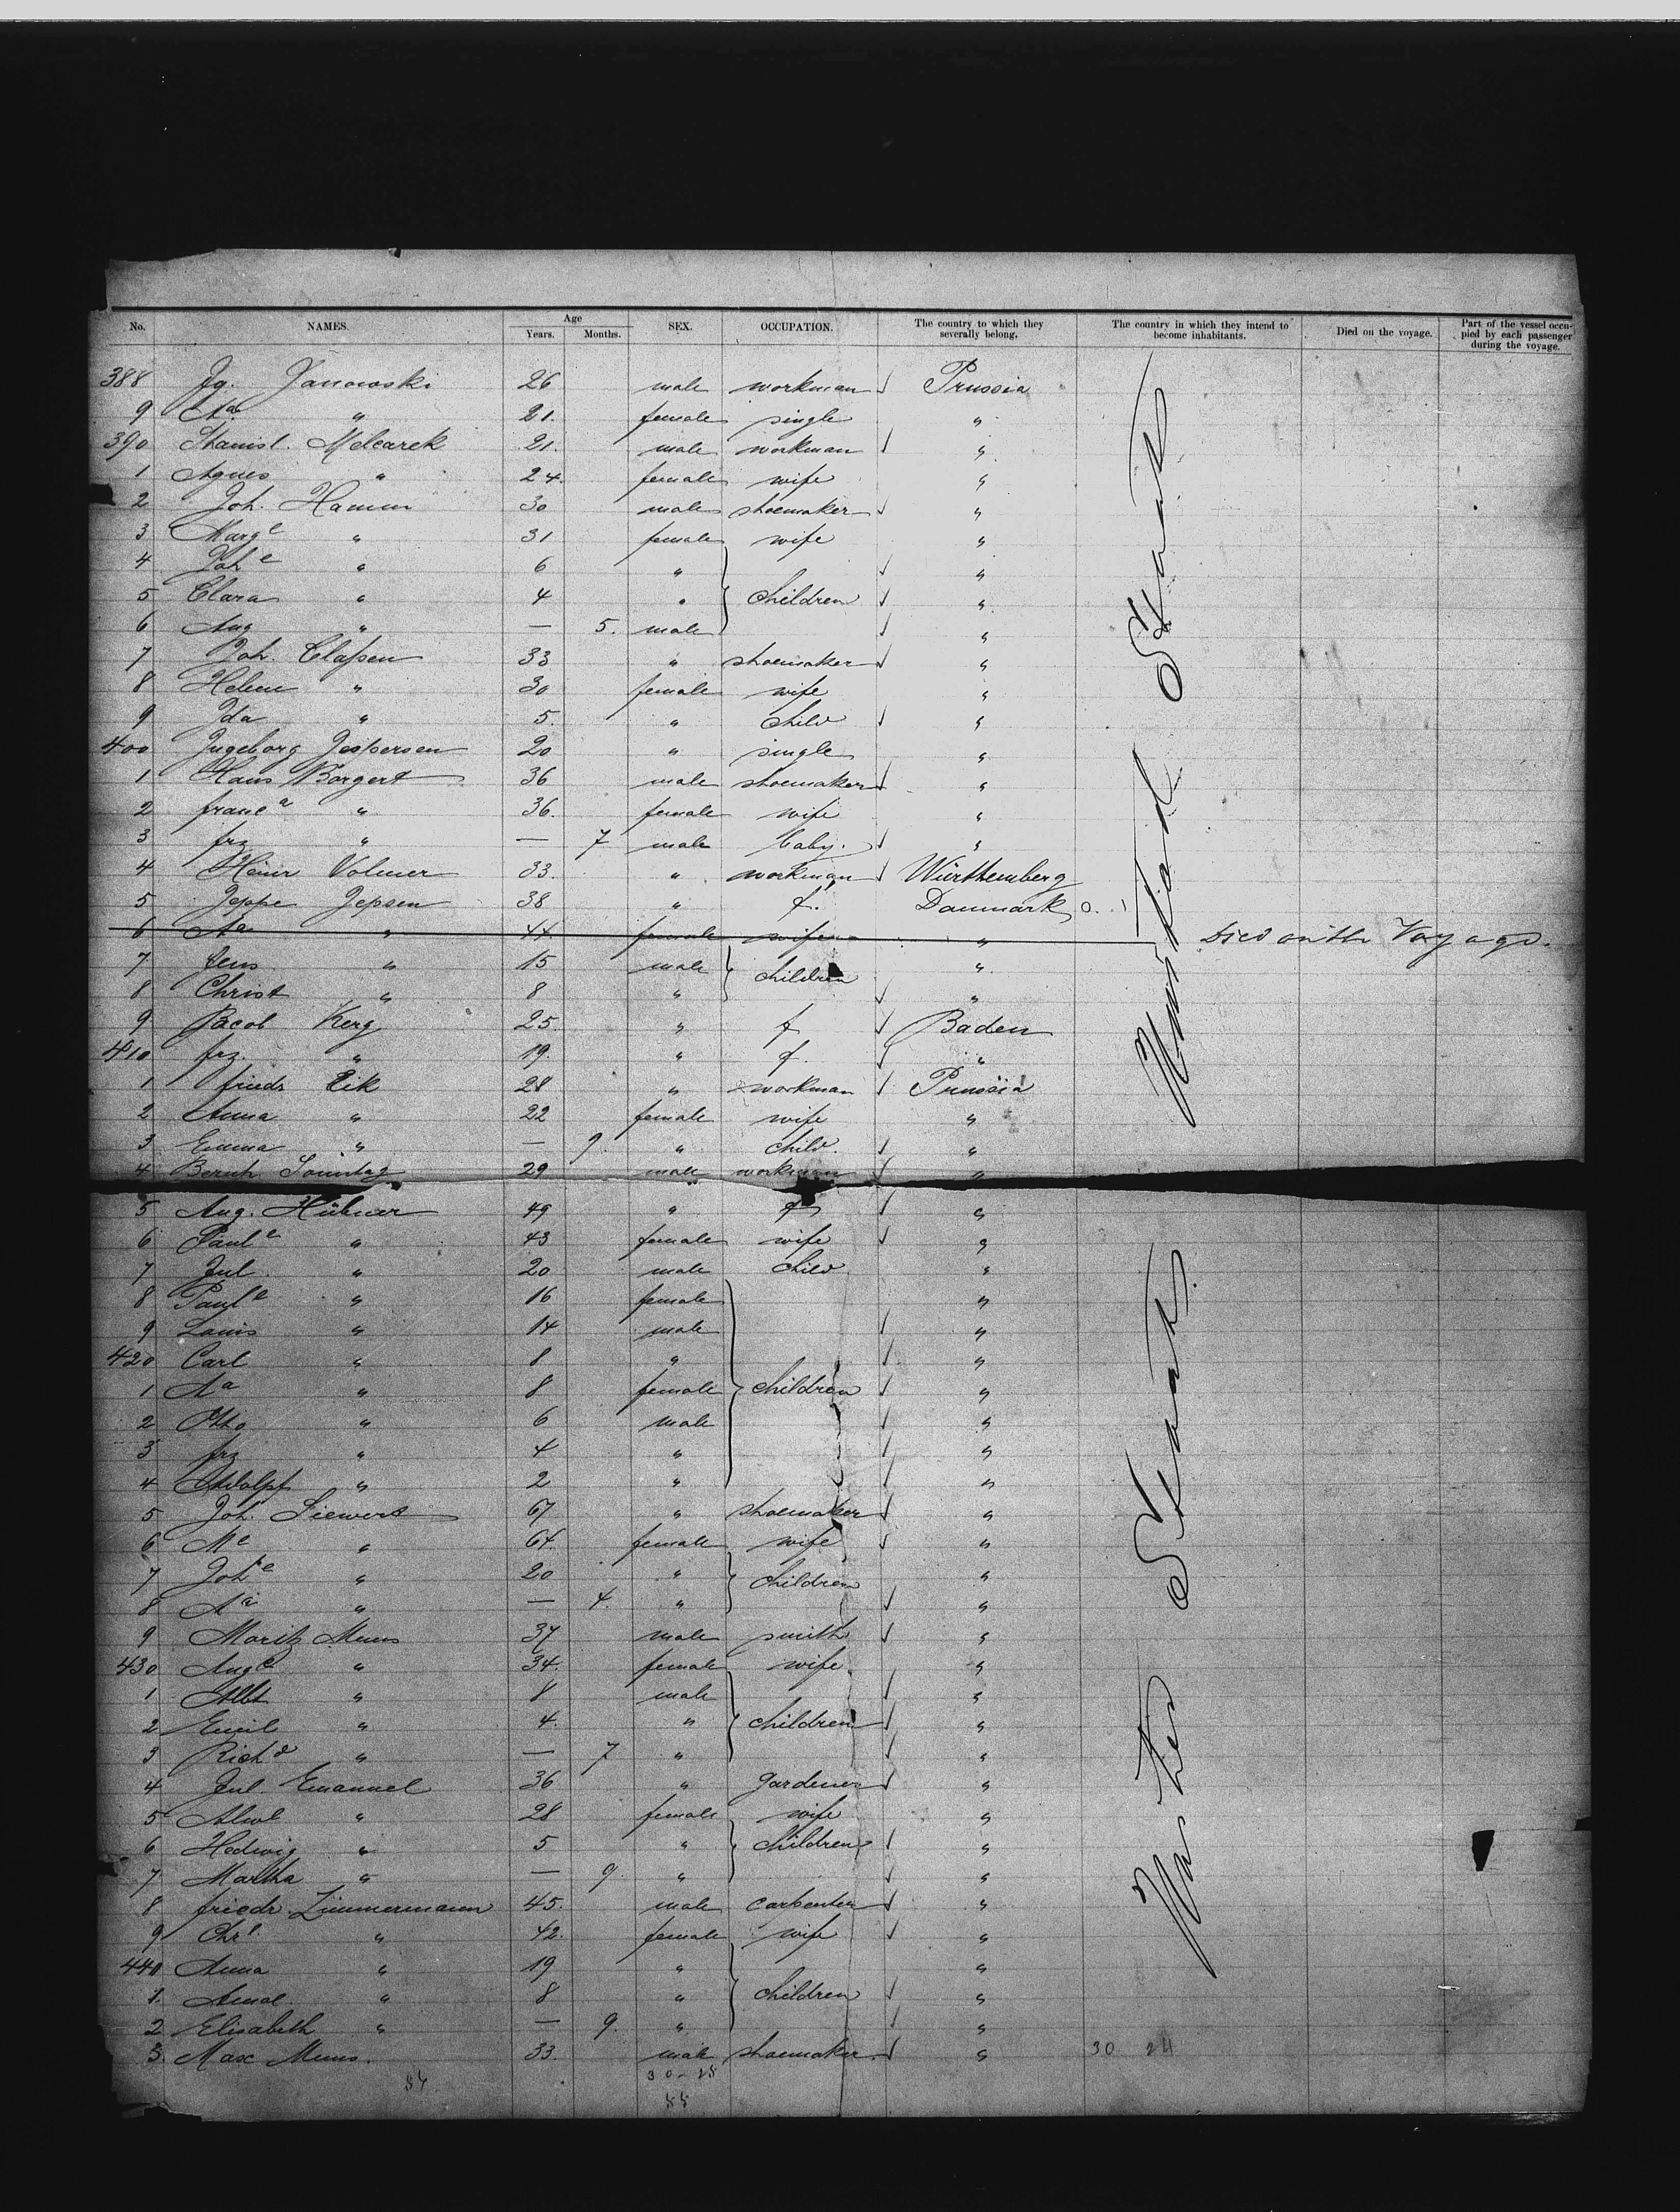 No. NAMES. Age Years. Months. SEX. OCCUPATION. The country to which they severally belong. The country in which they intend to become inhabitants. Died on the voyage. Part of the vessel occupied by each passenger during the voyage.
388 Ig. Janowski 26 male workman Prussia
9 Aa " 21. female single "
390 Stanisl. Melcarek 21. male workman "
1 Agnes " 24. female wife "
2 Joh. Hamm 30 male shoemaker "
3 Marg e " 31 female wife "
4 Joh e " 6 " "
5 Clara " 4 " children "
6 Aug " — 5. male "
7 Joh. Claſsen 33 " shoemaker "
8 Helene " 30 female wife "
9 Ida " 5. " child "
400 Ingeborg Jespersen 20 " single "
1 Hans Borgert 36 male shoemaker "
2 franc a " 36. female wife "
3 frz " — 7 male baby. "
4 Heinr Volmer 33. " workman Würthemberg
5 Jeppe Jepsen 38 " Danmark
6 Aa " 44 female wife " Died on the Voyage.
7 Jens " 15 male children "
8 Christ " 8 " "
9 Jacob Kerg 25. " Baden
410 frz. " 19. " "
1 friedr Eik 28 " workman Prussia
2 Anna " 22 female wife "
3 Emma " — 9. " child. "
4 Bernh Sonntag 29 male workman "
5 Aug. Hübner 49 " "
6 Paul e " 43 female wife "
7 Jul. " 20 male child "
8 Paul e " 16 female "
9 Louis " 14 male "
420 Carl " 8 " "
1 Aa " 8 female children "
2 Otto " 6 male "
3 frz " 4 " "
4 Adolpf " 2 " "
5 Joh. Siewert 67 " shoemaker "
6 M e " 64. female wife "
7 Joh e " 20 " children "
8 Aa " — 4. " "
9 Moritz Muns 37 male smith "
430 Aug e " 34. female wife "
1 Albt " 8 male "
2 Emil " 4. " children "
3 Rich d " — 7 " "
4 Jul. Emanuel 36 " gardener "
5 Alwl " 28 female wife "
6 Hedwig " 5 " children "
7 Martha " — 9. " "
8 friedr. Zimmermann 45. male carpenter "
9 Chr e " 42. female wife "
440 Anna " 19 " "
1. Amal " 8 " children "
2 Elisabeth " — 9. " "
3. Max Muns. 33. male shoemaker. " 30 24
54 30-25
55
United States
United States